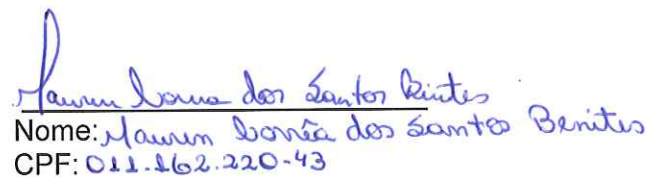 Mauren Corrêa dos Santos Benites
Nome: Mauren Corrêa dos Santos Benites
CPF: 011.162.220-43